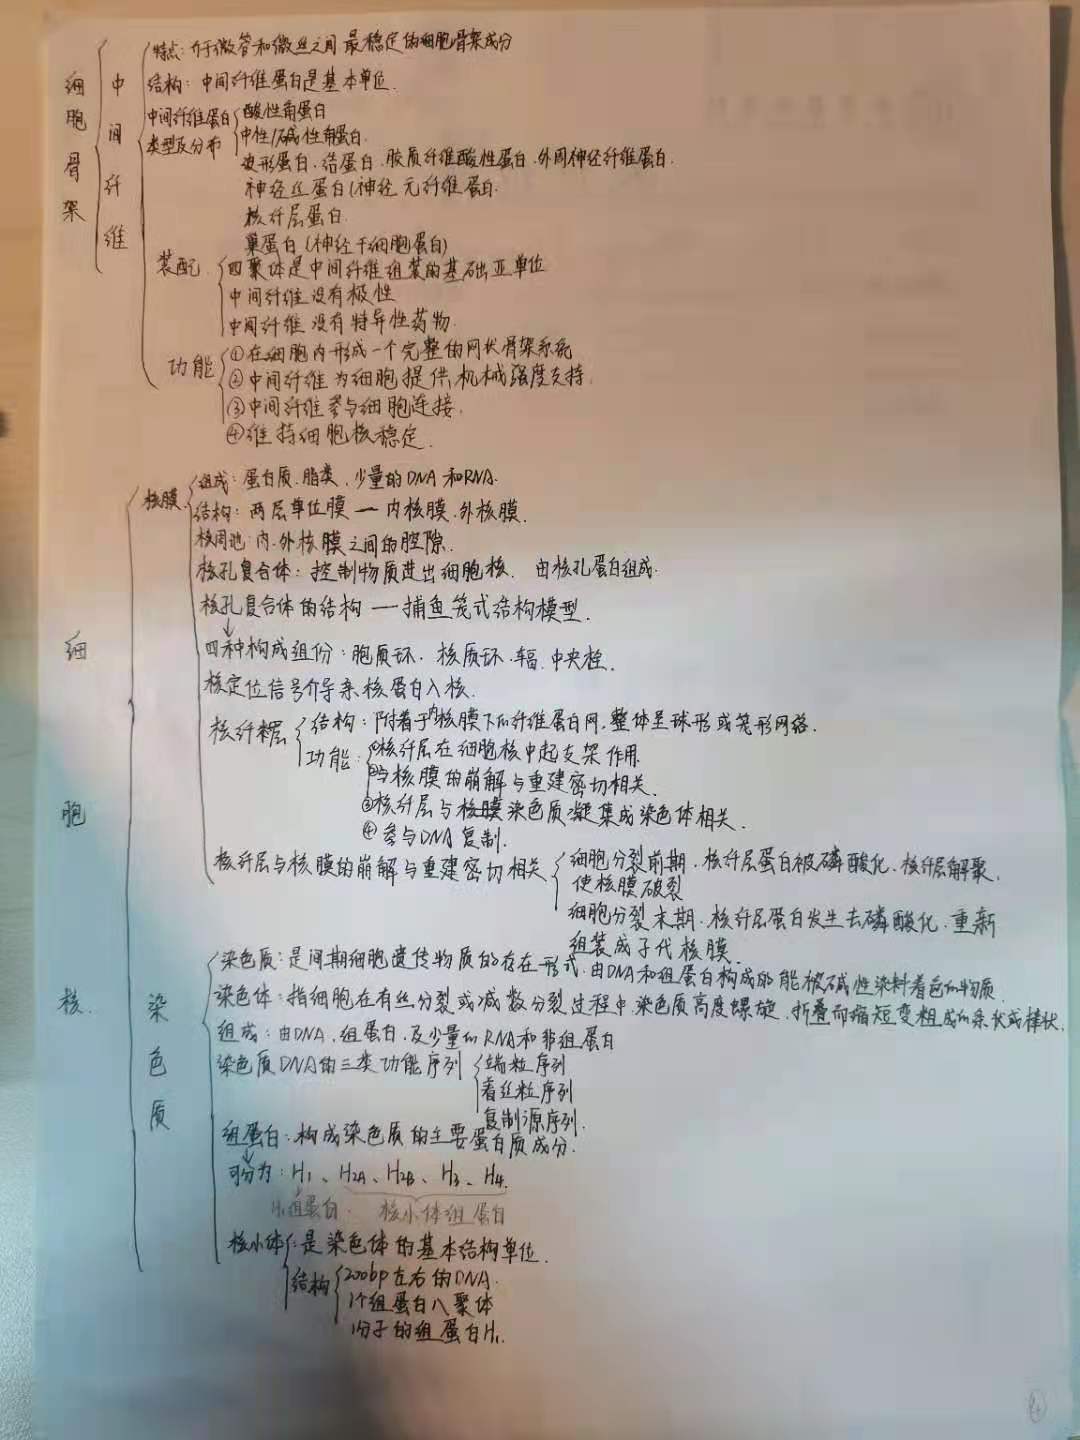 细胞骨架
中间纤维
特点：介于微管和微丝之间 最稳定的细胞骨架成分
结构：中间纤维蛋白是基本单位.
中间纤维蛋白类型及分布
酸性角蛋白
中性/碱性角蛋白.
波形蛋白、结蛋白、胶质纤维酸性蛋白、外周神经纤维蛋白.
神经丝蛋白(神经元纤维蛋白.
核纤层蛋白.
巢蛋白(神经干细胞蛋白)
装配
四聚体是中间纤维组装的基础亚单位
中间纤维没有极性
中间纤维没有特异性药物.
功能
①在细胞内形成一个完整的网状骨架系统
②中间纤维为细胞提供机械强度支持.
③中间纤维参与细胞连接.
④维持细胞核稳定.
细胞核.
核膜
组成：蛋白质、脂类、少量的DNA和RNA.
结构：两层单位膜 — 内核膜、外核膜.
核周池：内、外核膜之间的腔隙.
核孔复合体：控制物质进出细胞核. 由核孔蛋白组成.
核孔复合体的结构 — 捕鱼笼式结构模型.
↓
四种构成组份：胞质环、核质环、辐、中央栓.
核定位信号介导亲核蛋白入核.
核纤层
结构：附着于内核膜下的纤维蛋白网，整体呈球形或笼形网络.
功能：
①核纤层在细胞核中起支架作用
②与核膜的崩解与重建密切相关.
③核纤层与染色质凝集成染色体相关.
④参与DNA复制.
核纤层与核膜的崩解与重建密切相关
细胞分裂前期、核纤层蛋白被磷酸化、核纤层解聚，
使核膜破裂
细胞分裂末期、核纤层蛋白发生去磷酸化，重新
组装成子代核膜
染色质
染色质：是间期细胞遗传物质的存在形式，由DNA和组蛋白构成的能被碱性染料着色的物质.
染色体：指细胞在有丝分裂或减数分裂过程中，染色质高度螺旋、折叠而缩短变粗成的条状或棒状.
组成：由DNA、组蛋白、及少量的RNA和非组蛋白
染色质DNA的三类功能序列
端粒序列
着丝粒序列
复制源序列.
组蛋白：构成染色质的主要蛋白质成分.
↓
可分为：H1、H2A、H2B、H3、H4.
核小体组蛋白
核小体
：是染色体的基本结构单位.
结构
200bp左右的DNA.
1个组蛋白八聚体
1分子的组蛋白H1.
④